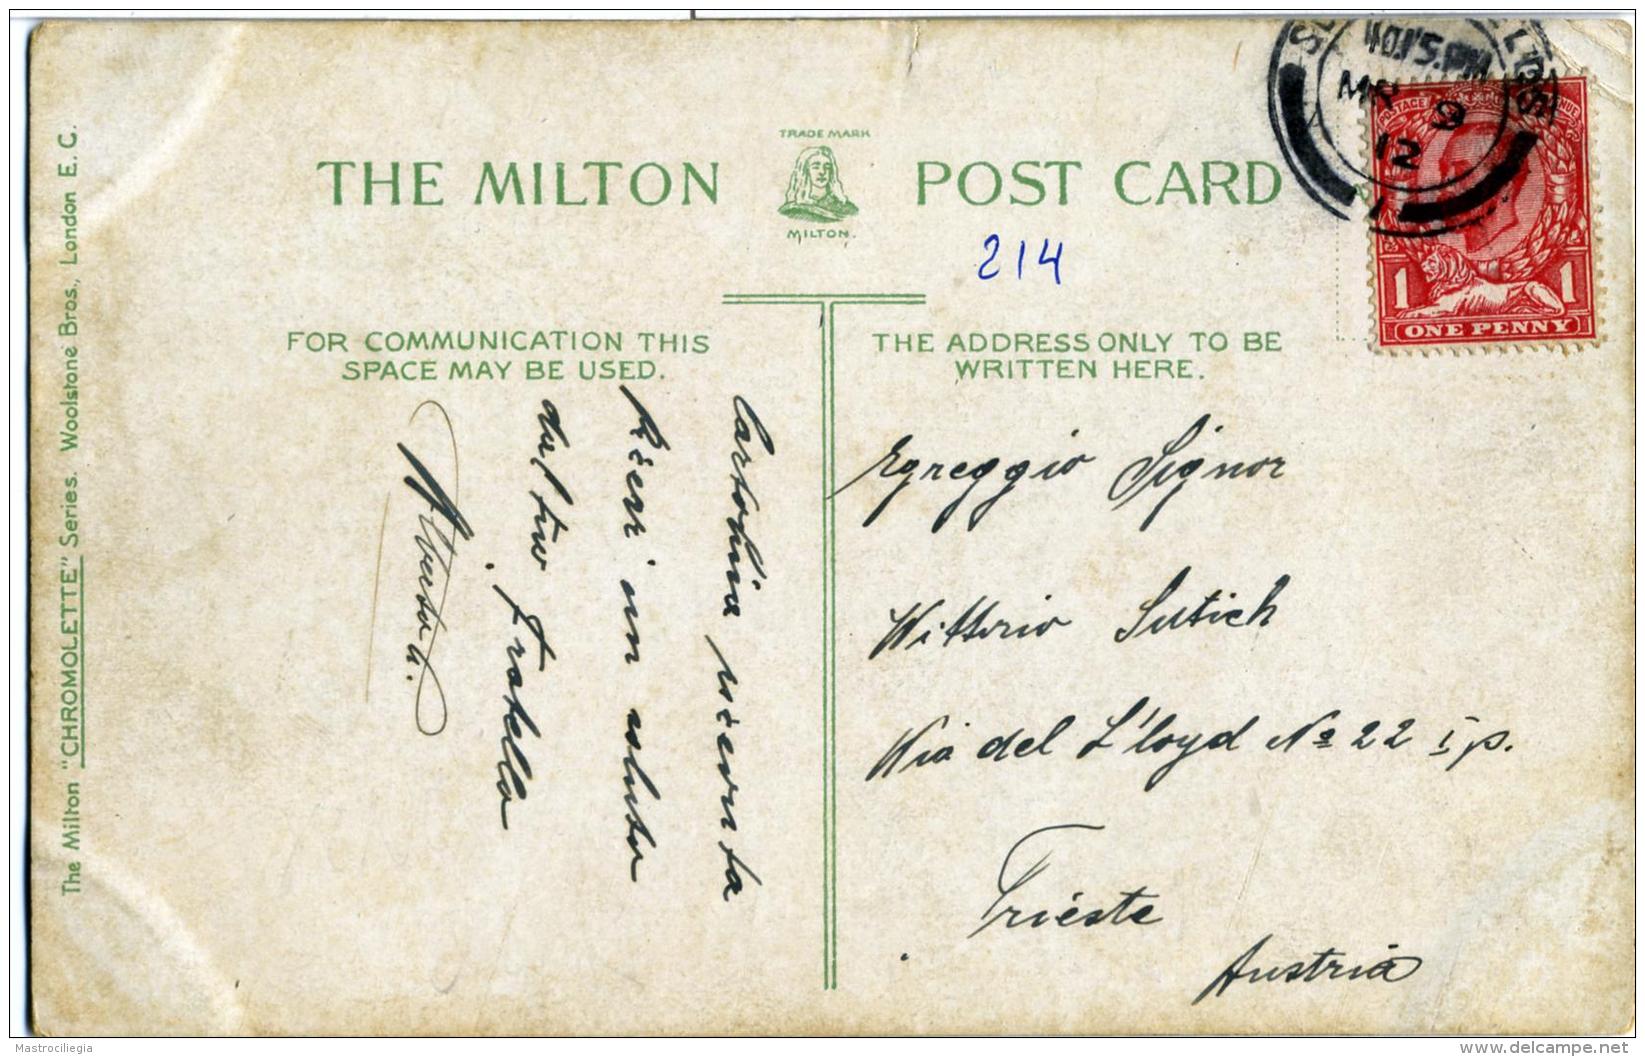 TRADE MARK
THE MILTON POST CARD
MILTON.
214
FOR COMMUNICATION THIS
SPACE MAY BE USED.
THE ADDRESS ONLY TO BE
WRITTEN HERE.
The Milton "CHROMOLETTE" Series. Woolstone Bros., London E. C.
Cartolina ricevuta
Ricevi un saluto
dal tuo
Fratello
Egreggio Signor
Vittorio Sutich
Via del L'loyd No 22 I p.
Trieste
Austria
10.15.PM
9
12
POSTAGE
1 1
ONE PENNY
Mastrociliegia
www.delcampe.net